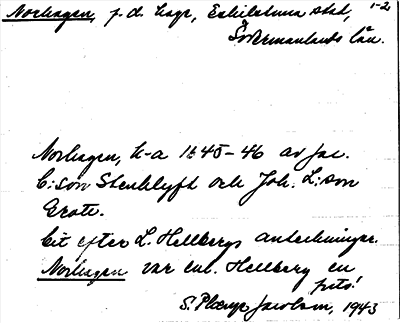 Norhagen, f.d. hage, Eskilstuna stad, 1-2
Södermanlands län.
Norhagen, h-a 1645-46 av Jac.
C:son Stenklyft och Joh. L:son
Grote.
Cit efter L. Hellbergs anteckningar.
Norhagen var enl. Hellberg en
S. Jacobson, 1943